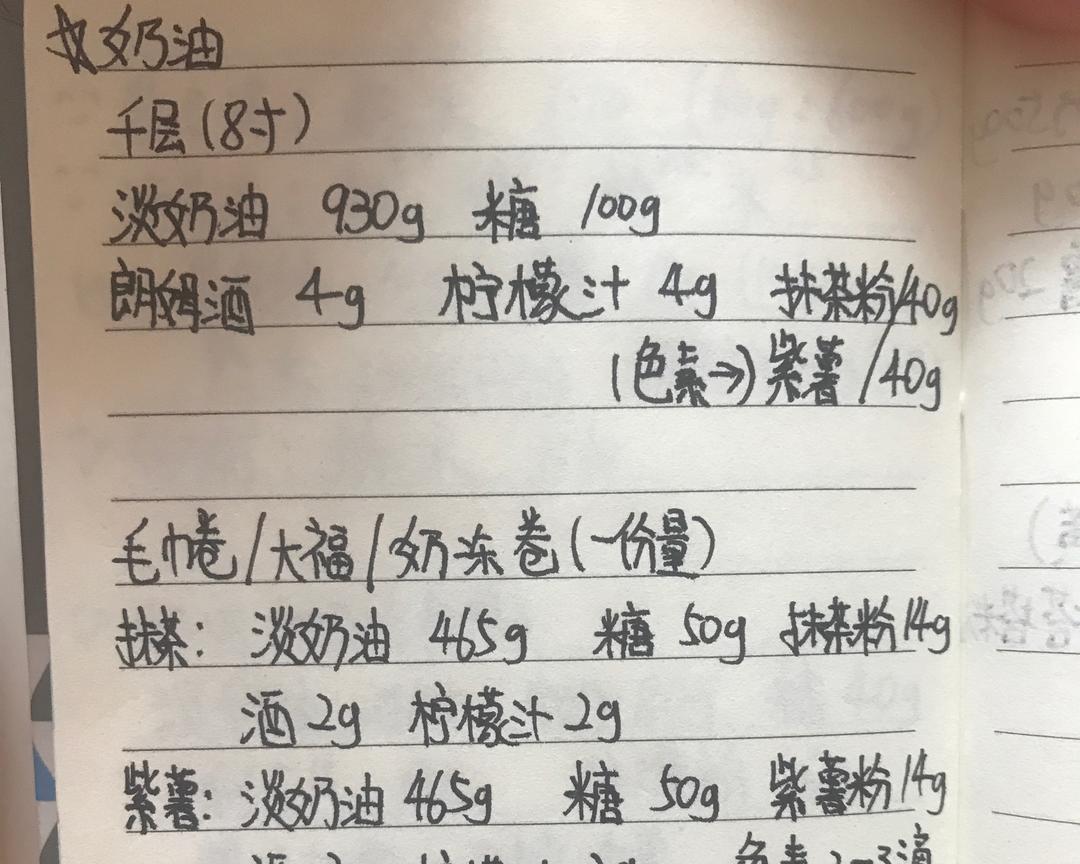 奶油
千层(8寸)
淡奶油 930g 糖 100g
朗姆酒 4g 柠檬汁 4g 抹茶粉/40g
(色素→)紫薯 /40g
毛巾卷/大福/奶冻卷(一份量)
抹茶: 淡奶油 465g 糖 50g 抹茶粉 14g
酒 2g 柠檬汁 2g
紫薯: 淡奶油 465g 糖 50g 紫薯粉 14g
色素 2-3滴